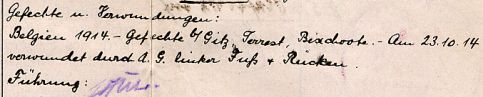 Gefechte u. Verwundungen:
Belgien 1914. - Gefechte b/ Gitz, Torrest, Bixchoote. - Am 23.10.14
verwundet durch A. G. linker Fuß + Rücken.
Führung: